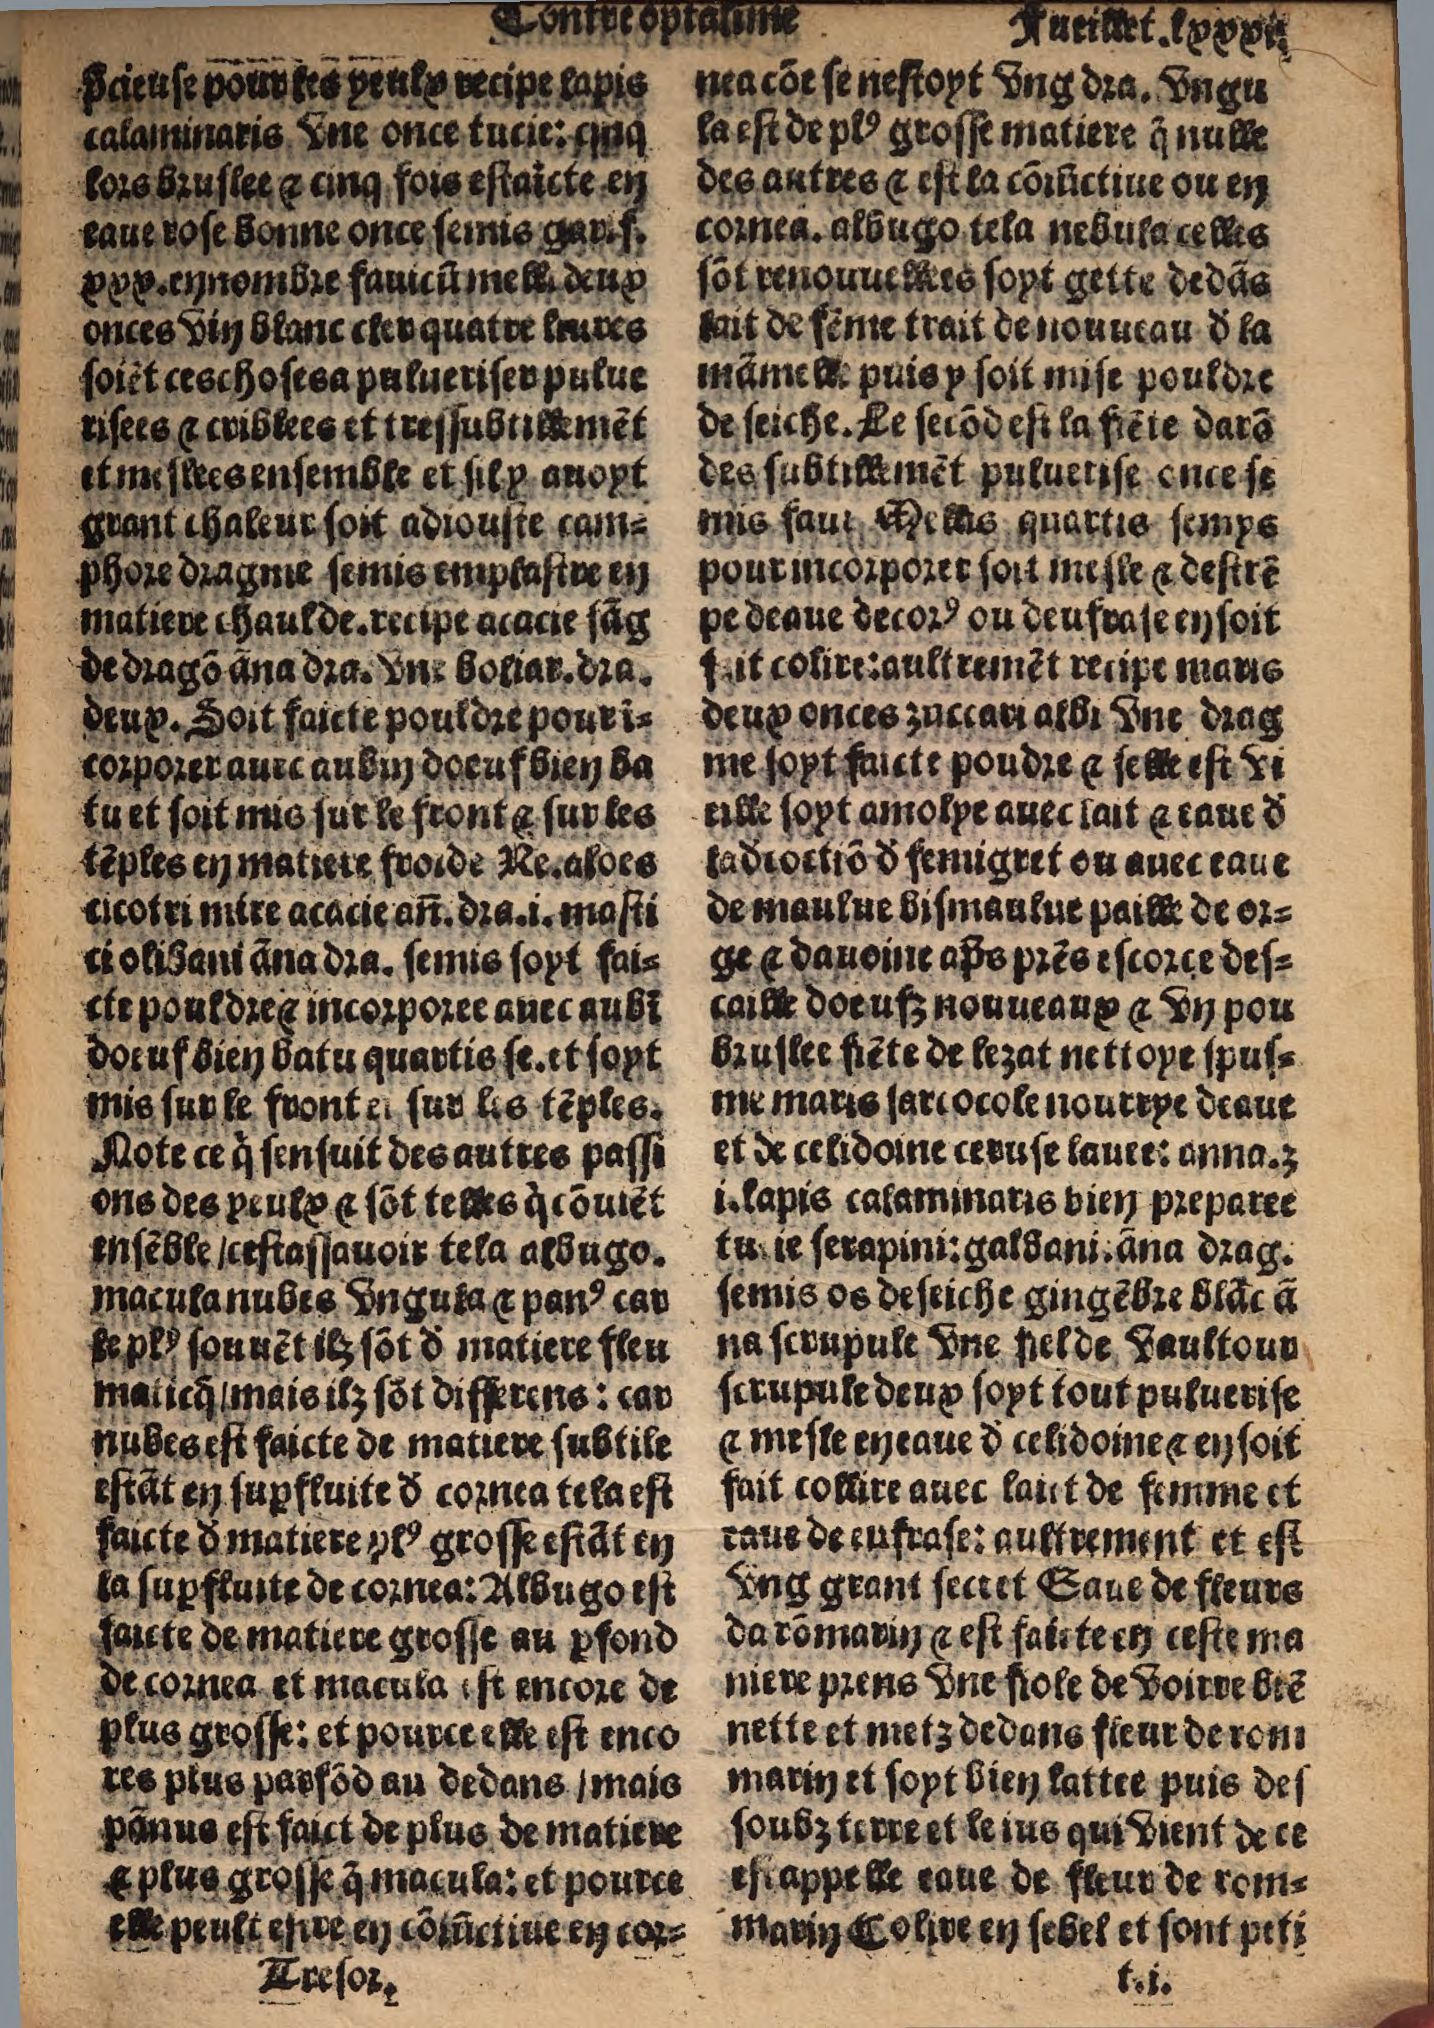 Contre optalmie
Fueillet. lxxxi
pcieuse pour les yeulx recipe lapis
calaminaris vne once tucie: cinq
fors bruslee ⁊ cinq fois estaĩcte en
eaue rose bonne once semis gar. f.
xxx. en nombre fauicũ melli. deux
onces vin blanc cler quatre liures
soiẽt ces choses a pulueriser pulue
risees ⁊ criblees et tressubtillemẽt
et meslees ensemble et sil y auoyt
grant chaleur soit adiouste cam-
phore dragme semis emplastre en
matiere chaulde. recipe acacie sãg
de dragõ ãna dra. vne boliar. dra.
deux. Soit faicte pouldre pour ĩ-
corporer auec aubin doeuf bien ba
tu et soit mis sur le front ⁊ sur les
tẽples en matiere froide Re. aloes
cicotri mirre acacie añ. dra. i. masti
ci olibani ãna dra. semis soyt fai-
cte pouldre ⁊ incorporee auec aubĩ
doeuf bien batu quartis se. et soyt
mis sur le front et sur les tẽples.
Note ce q̃ sensuit des autres passi
ons des yeulx ⁊ sõt telles q̃ cõuiẽt
ensẽble / cestassauoir tela albugo.
macula nubes vngula ⁊ panꝰ car
le plꝰ souuẽt ilz sõt d̃ matiere fleu
maticq̃ / mais ilz sõt differens: car
nubes est faicte de matiere subtile
estãt en suꝑfluite d̃ cornea tela est
faicte d̃ matiere plꝰ grosse estãt en
la suꝑfluite de cornea: Albugo est
faicte de matiere grosse au ꝓfond
de cornea et macula est encore de
plus grosse: et pource elle est enco
res plus parfõd au dedans / mais
pãnus est faict de plus de matiere
⁊ plus grosse q̃ macula: et pource
elle peult estre en cõiũctiue en cor-
Tresor.
nea cõe se nestoyt vng dra. vngu
la est de plꝰ grosse matiere q̃ nulle
des autres ⁊ est la cõiũctiue ou en
cornea. albugo tela nebula celles
sõt renouuellees soyt gette dedãs
lait de fẽme trait de nouueau d̃ la
mãmelle puis y soit mise pouldre
de seiche. Le secõd est la fiẽte darõ
des subtillemẽt puluerise once se
mis faui Mellis quartis semps
pour incorporer soit mesle ⁊ destrẽ
pe deaue decorꝰ ou deufrase en soit
fait colire: aultremẽt recipe maris
deux onces zuccari albi vne drag
me soyt faicte poudre ⁊ selle est vi
eille soyt amolye auec lait ⁊ eaue d̃
la dioctiõ d̃ femigret ou auec eaue
de maulue bismaulue paille de or-
ge ⁊ dauoine ap̃s prẽs escorce des-
caille doeufz nouueaux ⁊ vn pou
bruslee fiẽte de lezat nettoye spus-
me maris sarcocole nourrye deaue
et de celidoine ceruse lauee: anna. ʒ
i. lapis calaminaris bien preparee
tucie serapini: galbani. ãna drag.
semis os de seiche gingẽbre blãc ã
na scrupule vne fiel de vaultour
scrupule deux soyt tout puluerise
⁊ mesle en eaue d̃ celidoine ⁊ en soit
fait collire auec laict de femme et
eaue de eufrase: aultrement et est
vng grant secret Eaue de fleurs
da rõmarin ⁊ est faicte en ceste ma
niere prens vne fiole de voirre biẽ
nette et metz dedans fleur de rom
marin et soyt bien lattee puis des
soubz terre et le ius qui vient de ce
est appelle eaue de fleur de rom-
marin Colire en sebel et sont peti
t. i.